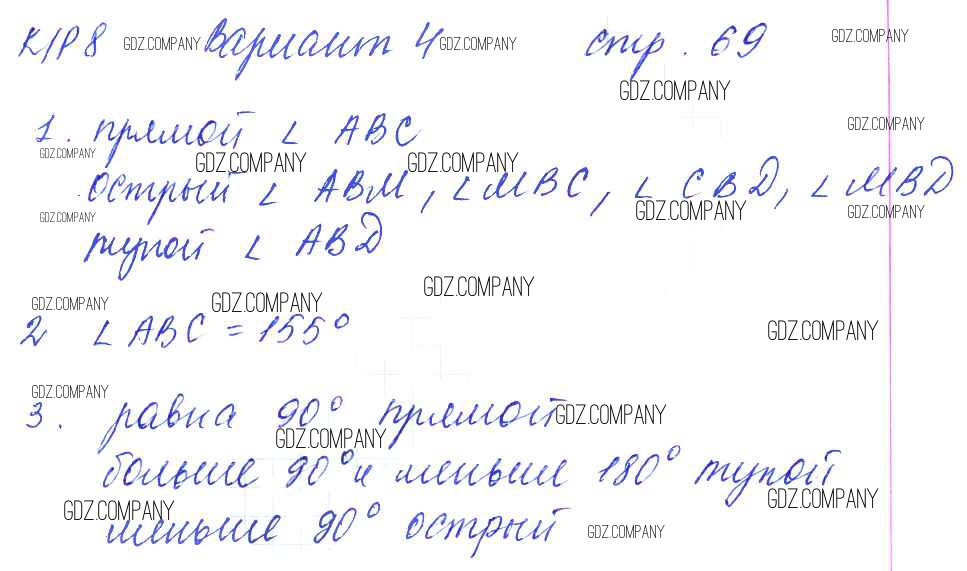 К/Р 8 GDZ.COMPANY Вариант 4 GDZ.COMPANY стр. 69 GDZ.COMPANY
GDZ.COMPANY
1. прямой ∠ ABC GDZ.COMPANY
GDZ.COMPANY GDZ.COMPANY GDZ.COMPANY
острый ∠ ABM, ∠ MBC, ∠ CBD, ∠ MBD
GDZ.COMPANY GDZ.COMPANY GDZ.COMPANY
тупой ∠ ABD
GDZ.COMPANY GDZ.COMPANY GDZ.COMPANY
2 ∠ ABC = 155° GDZ.COMPANY
GDZ.COMPANY
3. равна 90° прямой GDZ.COMPANY
GDZ.COMPANY
больше 90° и меньше 180° тупой
GDZ.COMPANY GDZ.COMPANY
меньше 90° острый GDZ.COMPANY